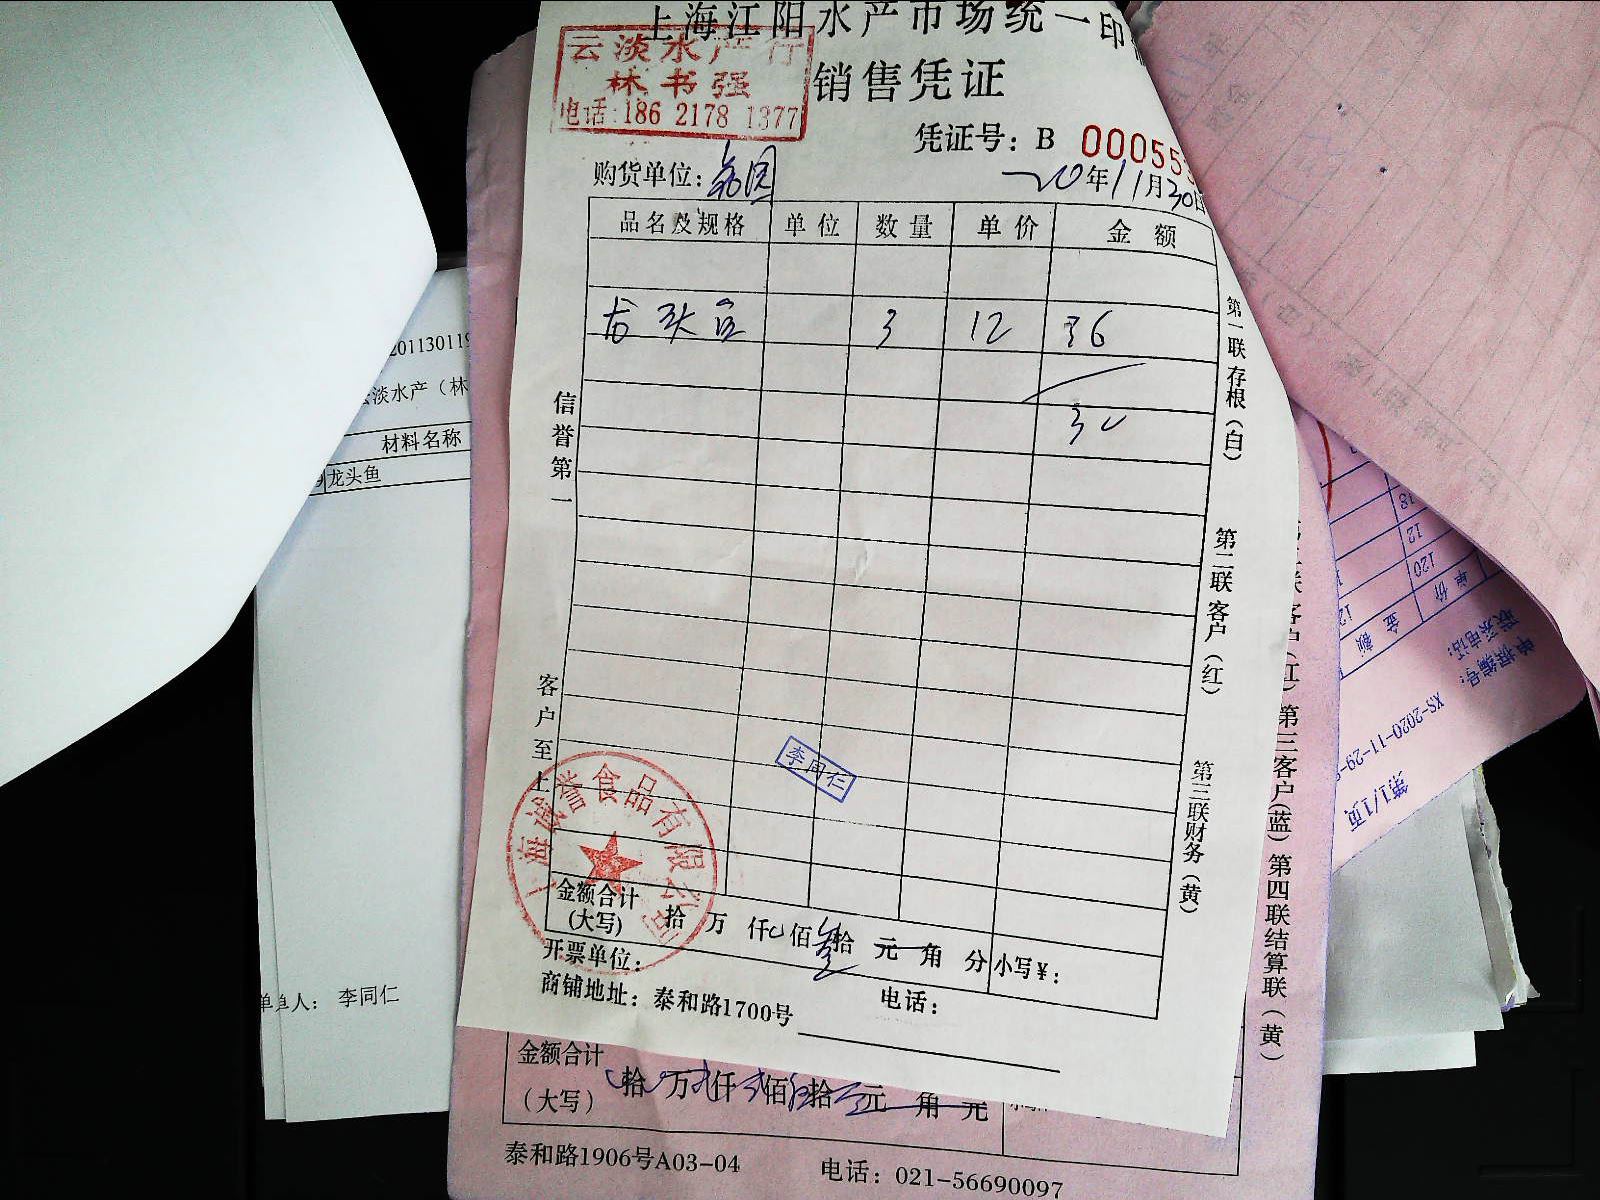 上海江阳水产市场统一印
云淡水产行
林书强
电话:186 2178 1377
销售凭证
凭证号: B 000555
购货单位:
20年11月30日
品名及规格 单位 数量 单价 金额
龙头 3 12 36
信誉第一
客户至上
第一联存根(白)
第二联客户(红)
第三联财务(黄)
李同仁
上海诚誉食品有限公司
金额合计(大写) 拾 万 仟 佰 叁拾 元 角 分 小写¥:
开票单位:
商铺地址: 泰和路1700号 电话:
201130119
云淡水产(林
材料名称
龙头鱼
单人: 李同仁
第三客户(蓝) 第四联结算联(黄)
金额合计
(大写) 拾 万 仟 佰 拾 元 角
泰和路1906号A03-04 电话: 021-56690097
第1/1页
XS-2020-11-29-
单据编号:
联系电话:
单价 金额
120
12
18